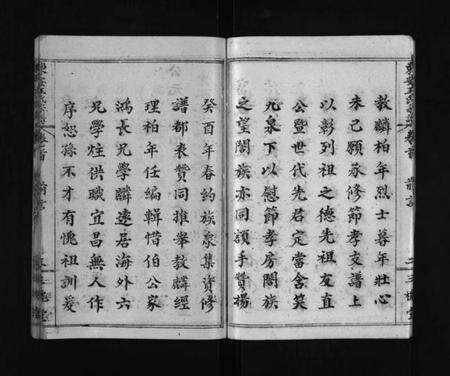 教麟柏年烈士暮年壯心
未已願承修節孝支譜上
以彰列祖之德先祖友直
公暨世代先君定當含笑
九泉下以慰節孝房闔族
之望闔族亦同頌手贊揚
癸酉年春約族衆集資修
譜都表贊同推舉教麟經
理柏年任編輯惜伯公家
鴻長兄學麟遠居海外六
兄學炷供職宜昌無人作
序恕孫不才有愧祖訓爰